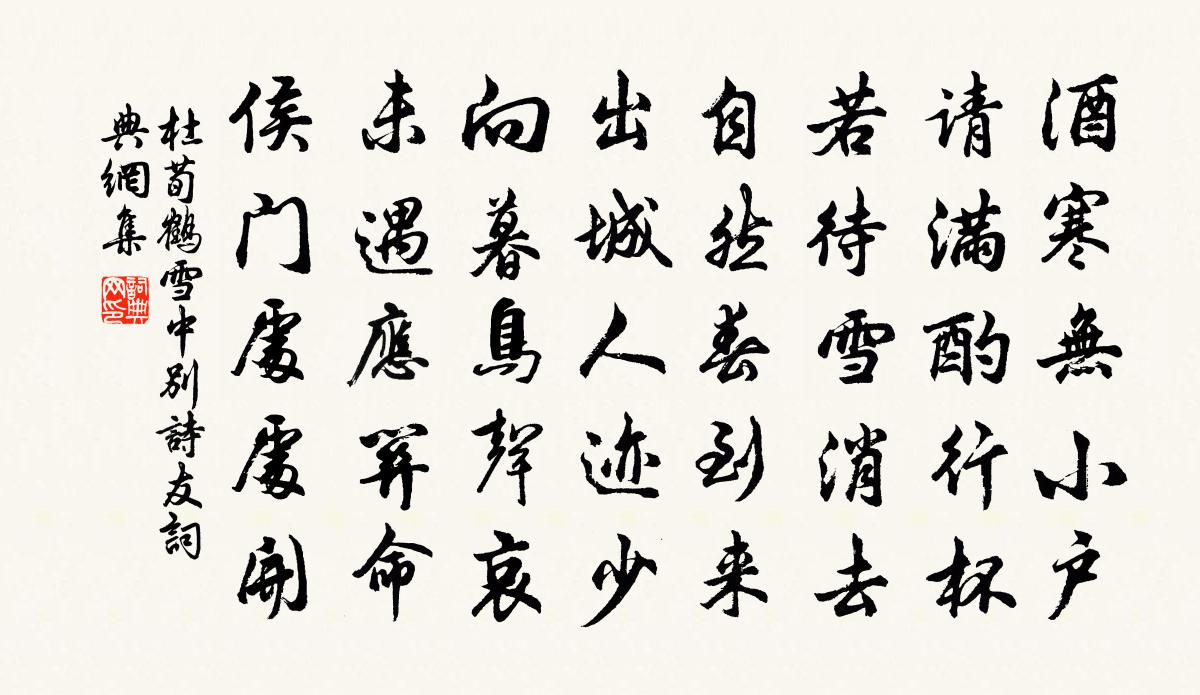 酒寒無小户
请满酌行杯
若待雪消去
自然春到来
出城人迹少
向暮鳥聲哀
未遇應關命
侯门處處開
杜荀鶴雪中别詩友詞
典網集
詞典
网印